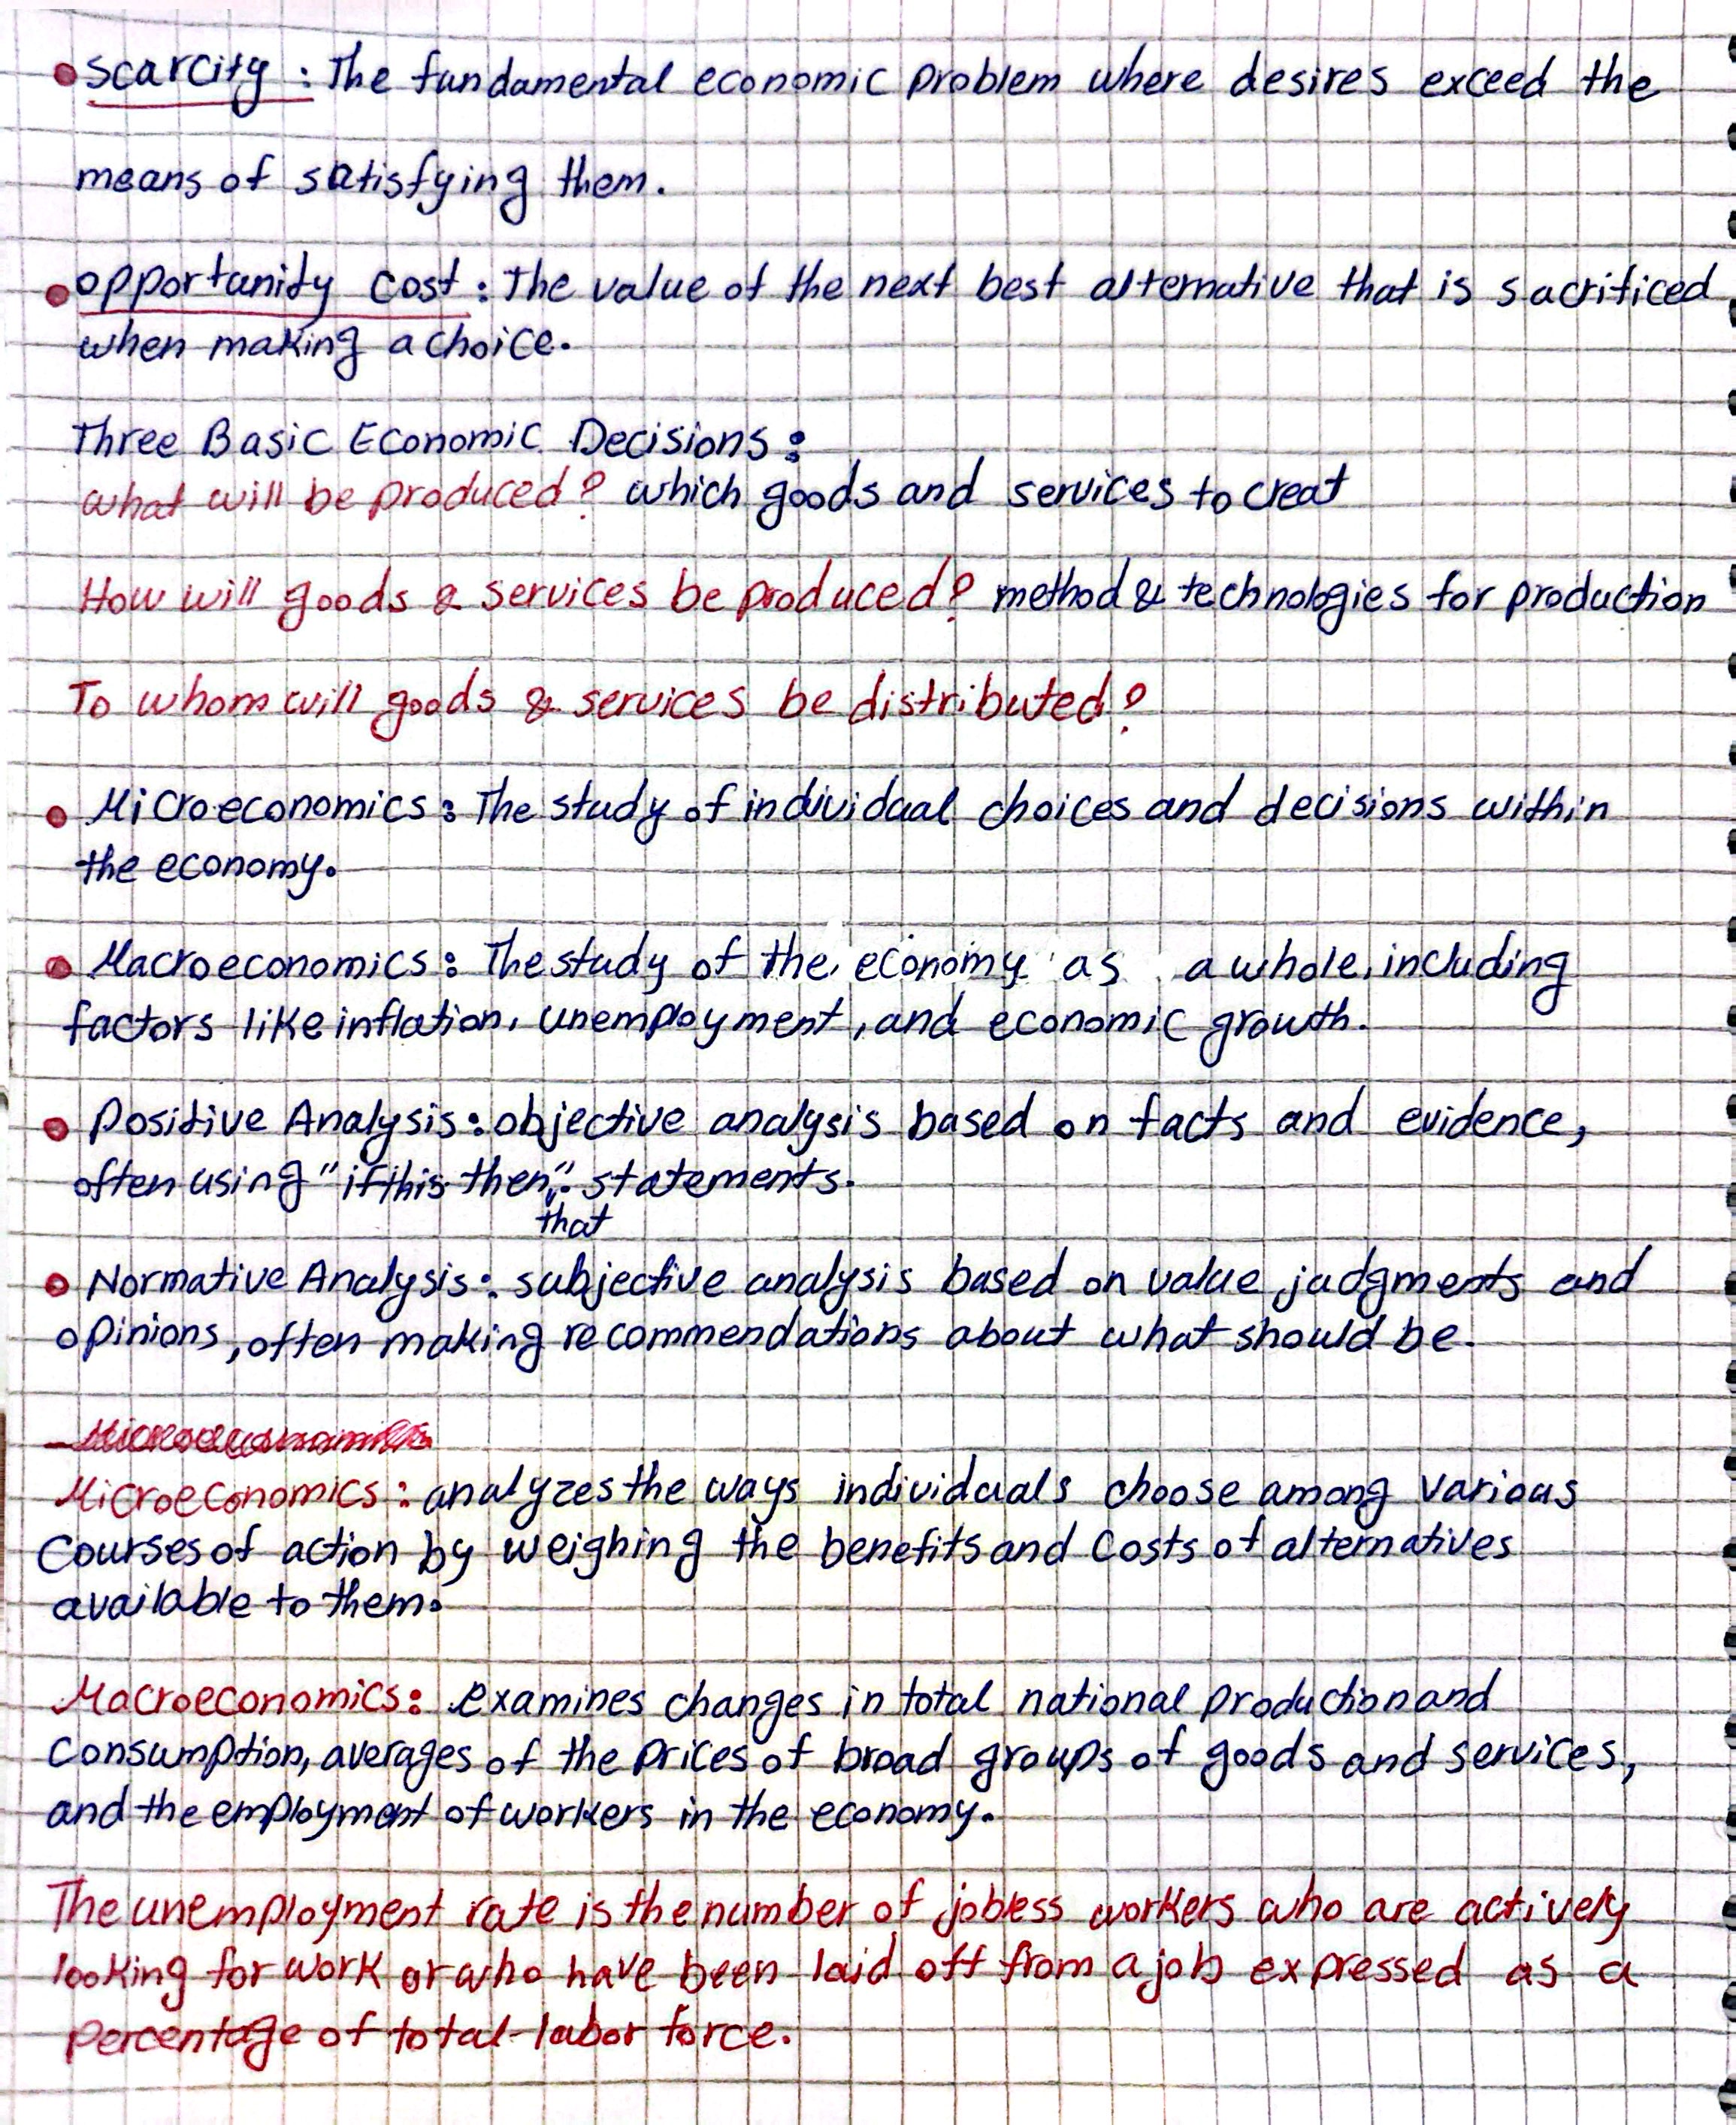 • Scarcity : The fundamental economic problem where desires exceed the
means of satisfying them.
• opportunity cost : The value of the next best alternative that is sacrificed
when making a choice.
Three Basic Economic Decisions :
what will be produced? which goods and services to creat
How will goods & services be produced? method & technologies for production
To whom will goods & services be distributed?
• Microeconomics : The study of individual choices and decisions within
the economy.
• Macroeconomics : The study of the economy as a whole, including
factors like inflation, unemployment, and economic growth.
• Positive Analysis : objective analysis based on facts and evidence,
often using "if this then". statements.
that
• Normative Analysis : subjective analysis based on value judgments and
opinions, often making recommendations about what should be.
Microeconomics : analyzes the ways individuals choose among various
Courses of action by weighing the benefits and Costs of alternatives
available to them.
Macroeconomics : examines changes in total national production and
Consumption, averages of the prices of broad groups of goods and services,
and the employment of workers in the economy.
The unemployment rate is the number of jobless workers who are actively
looking for work or who have been laid off from a job expressed as a
percentage of total labor force.